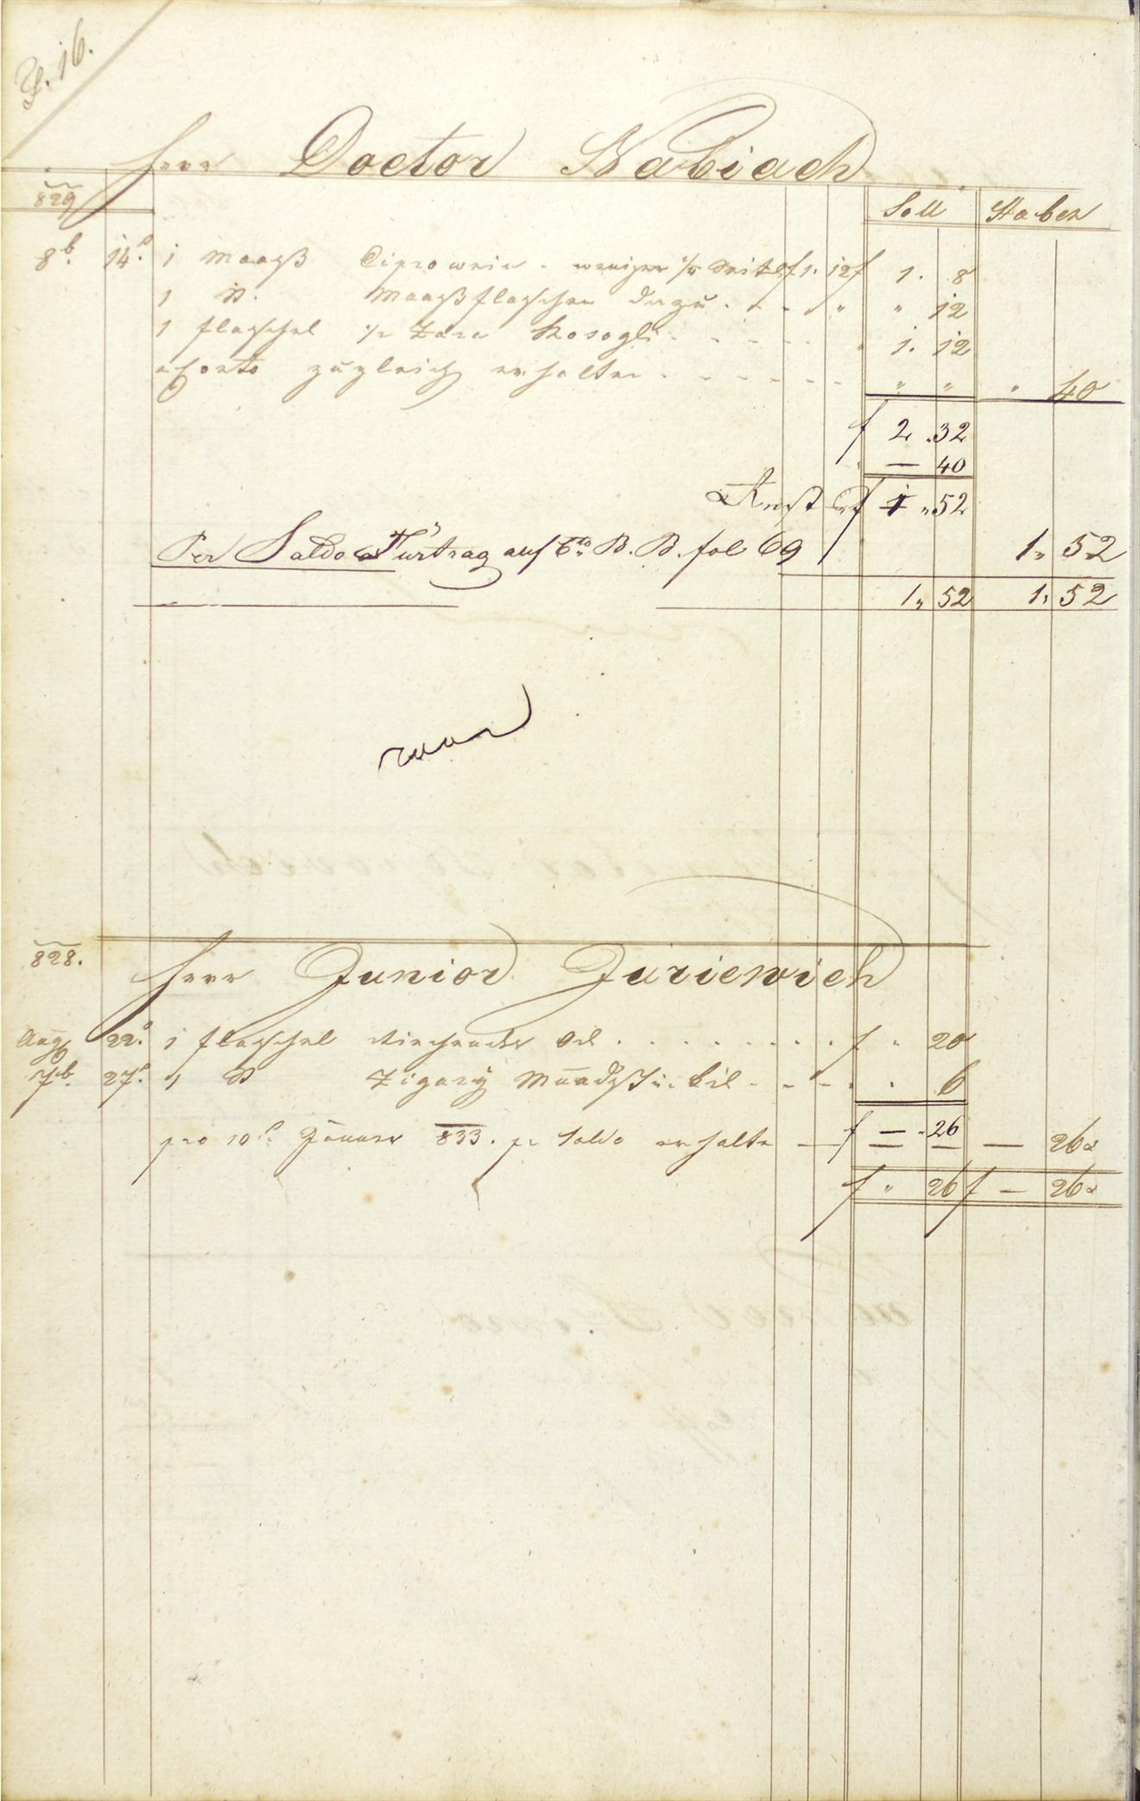 16.
Herr Doctor Nabiach
829
Soll Haben
8b. 14. 1 Maaß Ciprowein weniger Seitel f 1. 12 f 1. 8
1 D. Maaßflaschen dazu . . . " " 12
1 Flaschel Zara Rosogli . . . . 1. 12
aConto zugleich erhalten . . . . . . . " " " 40
f 2.32
— 40
Rest f 1 "52
Per Saldo Fürtrag auf B. B. fol 69 1" 52
1" 52 1" 52
828.
Herr Junior Juriewich
Aug 22. 1 Flaschel riechendes Oel . . . . . . . . f " 20
7b. 27. 1 D Zigary Mundstückel - - - . " 6
pro 10 Jänner 833. pr Saldo erhalte — f — "26 — 26x
f " 26 f — 26x